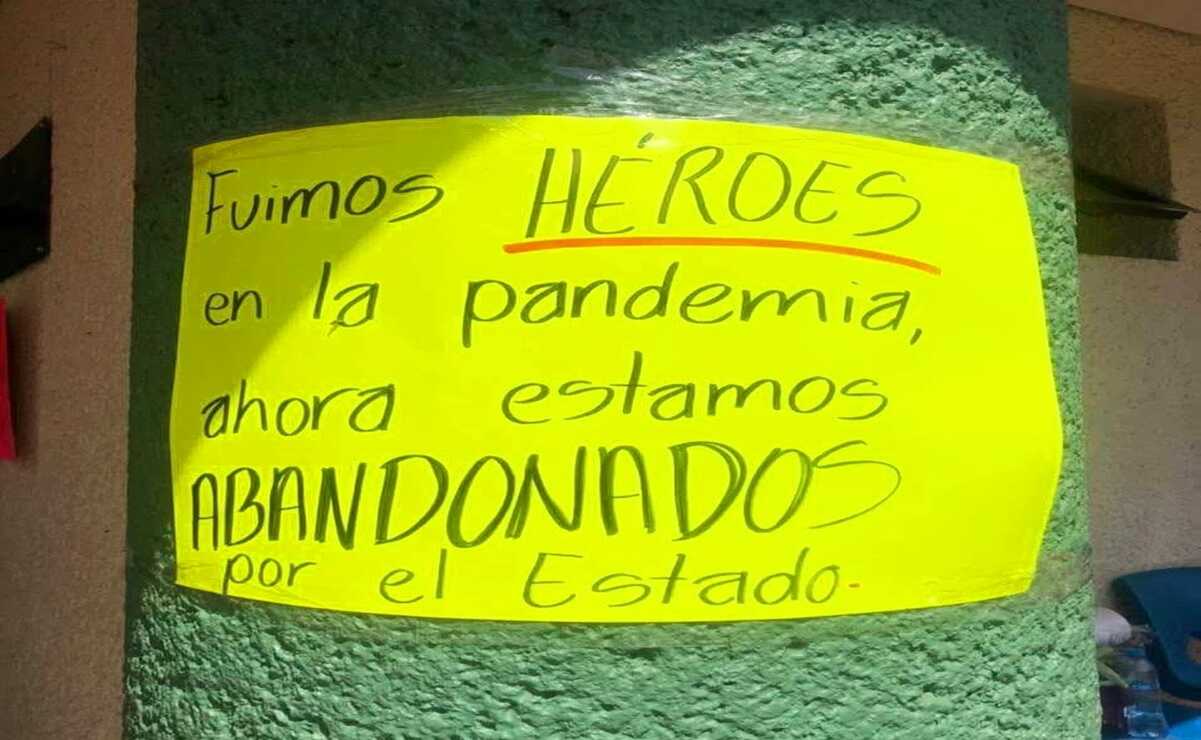 Fuimos HÉROES
en la pandemia,
ahora estamos
ABANDONADOS
por el Estado.